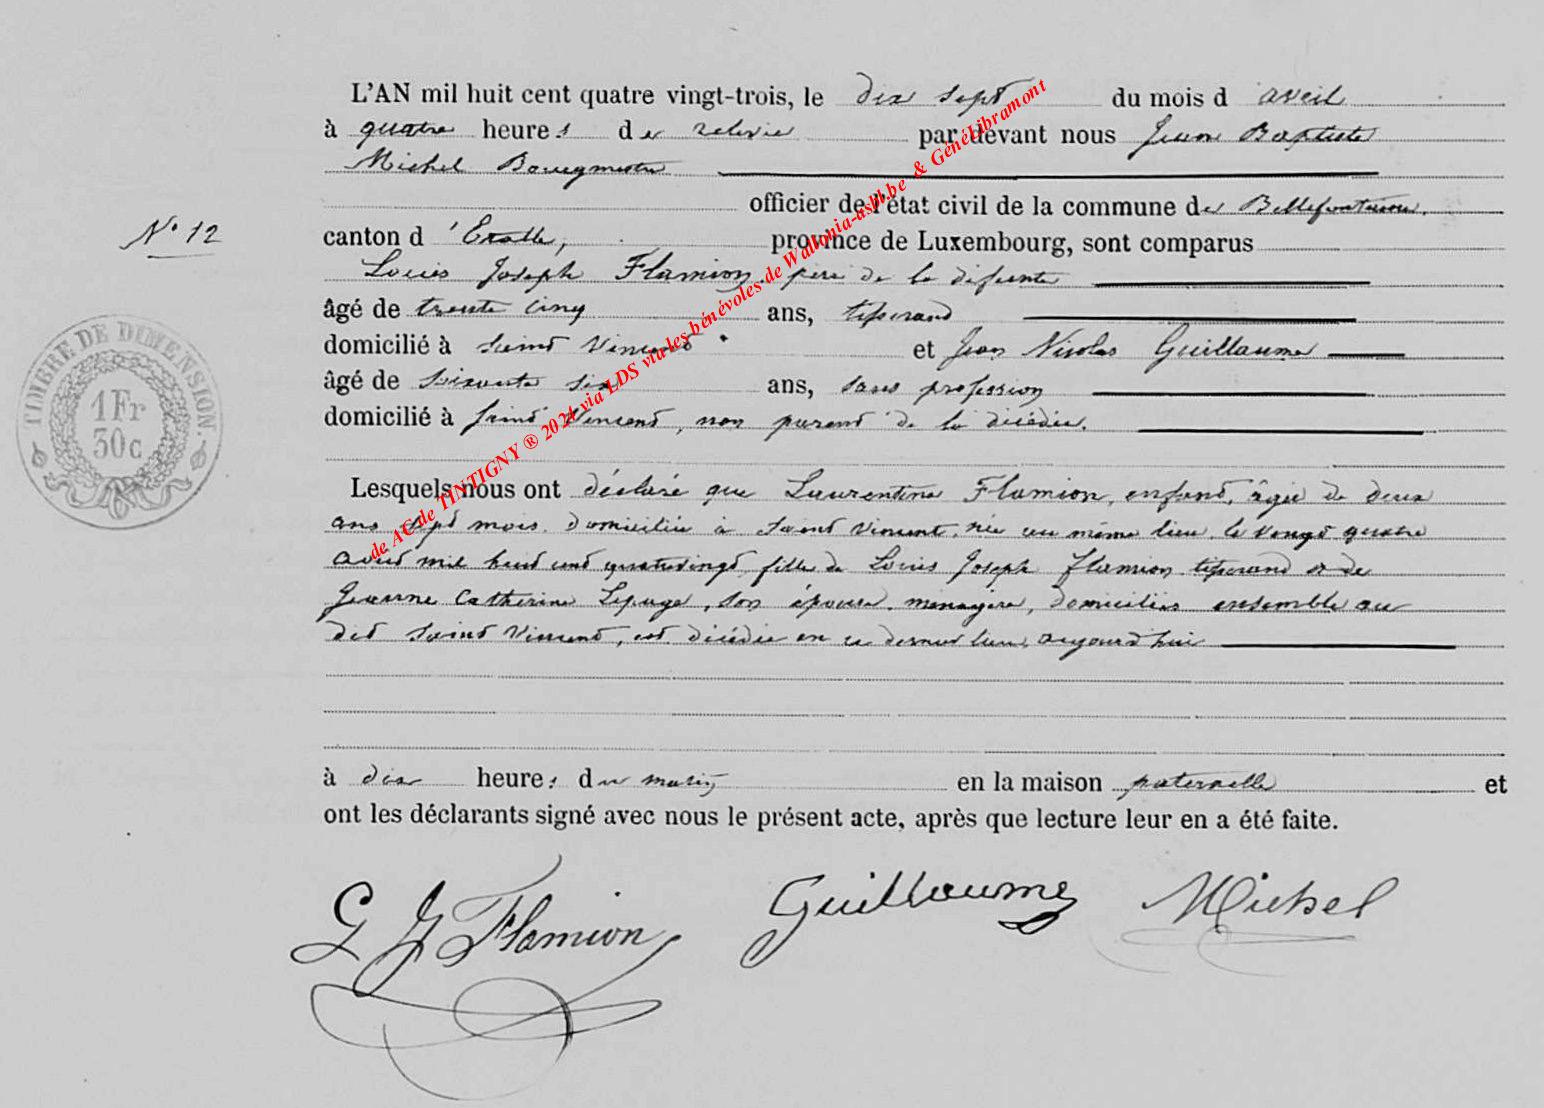 L'AN mil huit cent quatre vingt-trois, le dix sept du mois d avril
à quatre heures de relevée par devant nous Jean Baptiste
Michel Bourgmestre
officier de l'état civil de la commune de Bellefontaine.
N° 12
canton d 'Etalle, province de Luxembourg, sont comparus
Louis Joseph Flamion père de la défunte
âgé de trente cinq ans, tisserand
domicilié à Saint Vincent et Jean Nicolas Guillaume
âgé de soixante six ans, sans profession
domicilié à Saint Vincent, non parent de la décédée.
Lesquels nous ont déclaré que Laurentine Flamion, enfant, âgée de deux
ans sept mois, domiciliée à Saint Vincent, née au même lieu le vingt quatre
août mil huit cent quatrevingt, fille de Louis Joseph Flamion tisserand et de
Jeanne Catherine Lepage, son épouse, ménagère, domiciliés ensemble au
dit Saint Vincent, est décédée en ce dernier lieu, aujourd'hui
à dix heures du matin en la maison paternelle et
ont les déclarants signé avec nous le présent acte, après que lecture leur en a été faite.
TIMBRE DE DIMENSION.
1 Fr
30c
J Flamion Guillaume Michel
de AC de TINTIGNY ® 2021 via LDS via les bénévoles de Wallonia-asbl.be & GénéLibramont